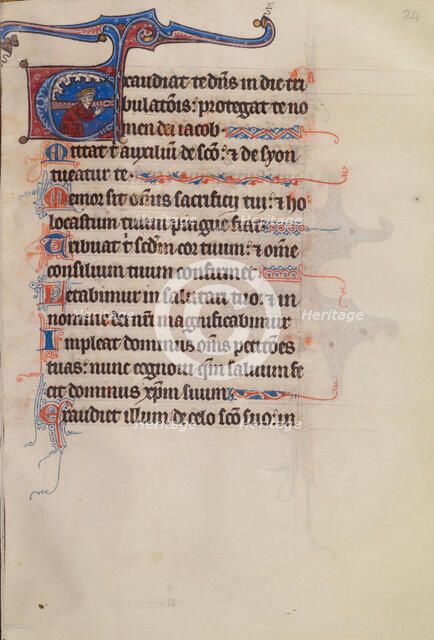 24
Exaudiat te dn̄s in die tri
bulatōis: protegat te no
men dei iacob.
Mittat t̄ auxiliū de sc̄o: & de syon
tueatur te.
Memor sit om̄is sacrificij tui: & ho
locastum tuum pingue fiat.
Tribuat t̄ sc̄dm cor tuum: & om̄e
consilium tuum confirmet.
Letabimur in salutari tuo: & in
nomine dei nr̄i magnificabimur
Impleat dominus om̄s petitōes
tuas: nunc cognoui qm̄ saluum fe
cit dominus xp̄m suum.
Exaudiet illum de celo sc̄o suo: in
Heritage
Heritage
Heritage
Heritage
Heritage